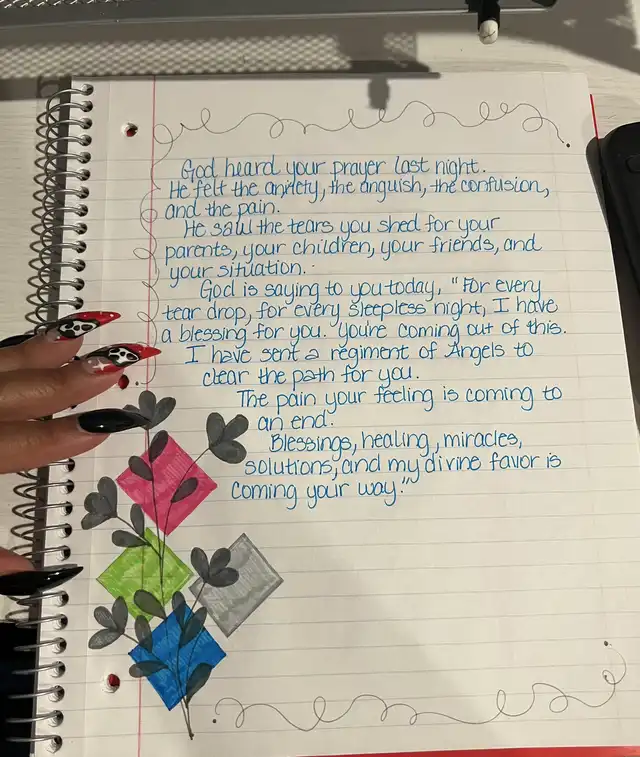 God heard your prayer last night.
He felt the anxiety, the anguish, the confusion,
and the pain.
He saw the tears you shed for your
parents, your children, your friends, and
your situation.
God is saying to you today, "For every
tear drop, for every sleepless night, I have
a blessing for you. you're coming out of this.
I have sent a regiment of Angels to
clear the path for you.
The pain your feeling is coming to
an end.
Blessings, healing, miracles,
solutions, and my divine favor is
coming your way."